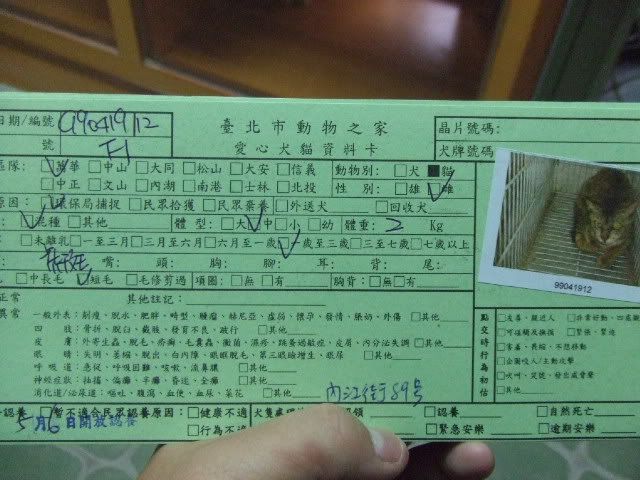 日期/編號 99041912
臺北市動物之家
愛心犬貓資料卡
晶片號碼:
號 F1
犬牌號碼
區隊: □萬華 □中山 □大同 □松山 □大安 □信義 動物別: □犬 ■貓
□中正 □文山 □內湖 □南港 □士林 □北投 性 別: □雄 □雌
原因: □環保局捕捉 □民眾拾獲 □民眾棄養 □外送犬 □回收犬
□混種 □其他 體 型: □大 □中 □小 □幼 體重: 2 Kg
□未離乳 □一至三月 □三月至六月 □六月至一歲 □一歲至三歲 □三至七歲 □七歲以上
嘴: 頭: 胸: 腳: 耳: 背: 尾:
□中長毛 □短毛 □毛修剪過 項圈: □無 □有 胸背: □無 □有
99041912
正常 其他註記:
異常 一般外表: 削瘦、脫水、肥胖、畸型、腫瘤、赫尼亞、虛弱、懷孕、發情、脹奶、外傷 □其他
四 肢: 骨折、脫臼、截肢、發育不良、跛行 □其他
皮 膚: 外寄生蟲、脫毛、疥癬、毛囊蟲、黴菌、濕疹、跳蚤過敏症、皮屑、內分泌失調 □其他
眼 睛: 失明、萎縮、脫出、白內障、眼瞼脫毛、第三眼瞼增生、眼屎 □其他
呼 吸 道: 急促、呼吸困難、咳嗽、流鼻膿 □其他
神經症狀: 抽搐、偏癱、半癱、昏迷、全癱 □其他
消化道/泌尿道: 嘔吐、腹瀉、血便、血尿、菜花 □其他
點交時行為初估
□友善、親近人 □非常好動、四處
□可碰觸及撫摸 □緊張、緊迫
□害羞、畏縮、不想移動
□企圖咬人/主動攻擊
□吠叫、哭號、發出威脅聲
□其他
內江街89號
認養 暫不適合民眾認養原因: □健康不適 □認養 □自然死亡
5月6日開放認養 □行為不 □緊急安樂 □逾期安樂